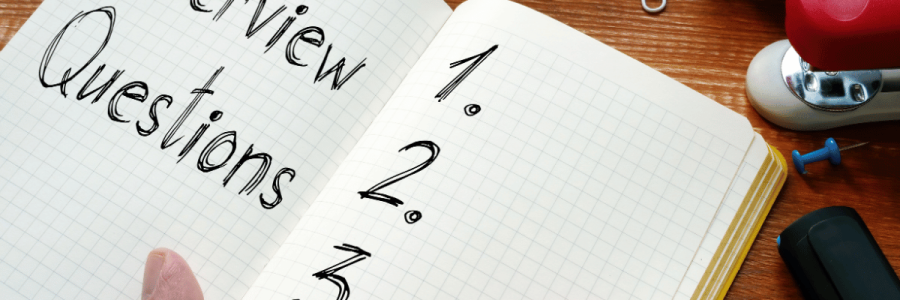 erview
Questions
1.
2.
3